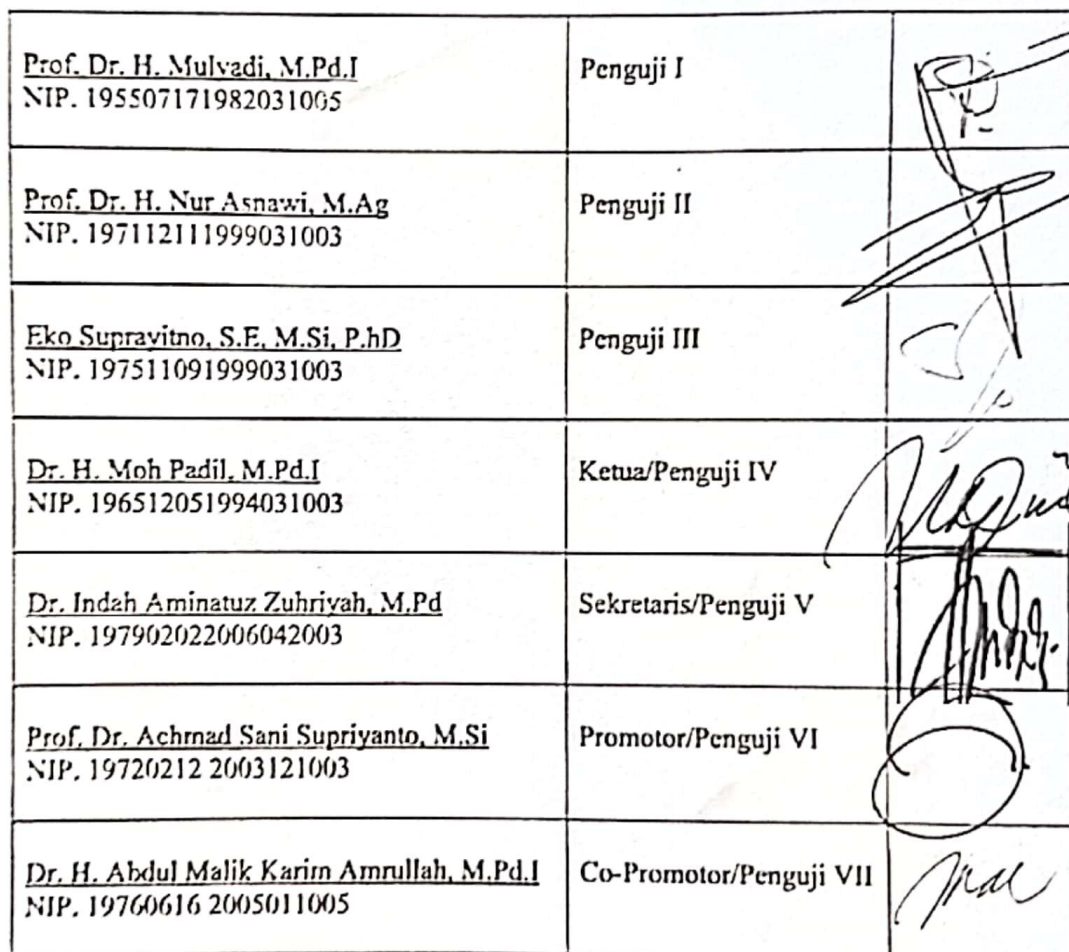 Prof. Dr. H. Mulyadi, M.Pd.I
NIP. 195507171982031005
Penguji I
Prof. Dr. H. Nur Asnawi, M.Ag
NIP. 197112111999031003
Penguji II
Eko Suprayitno, S.E, M.Si, P.hD
NIP. 197511091999031003
Penguji III
Dr. H. Moh Padil, M.Pd.I
NIP. 196512051994031003
Ketua/Penguji IV
Dr. Indah Aminatuz Zuhriyah, M.Pd
NIP. 197902022006042003
Sekretaris/Penguji V
Prof. Dr. Achmad Sani Supriyanto, M.Si
NIP. 19720212 2003121003
Promotor/Penguji VI
Dr. H. Abdul Malik Karim Amrullah, M.Pd.I
NIP. 19760616 2005011005
Co-Promotor/Penguji VII